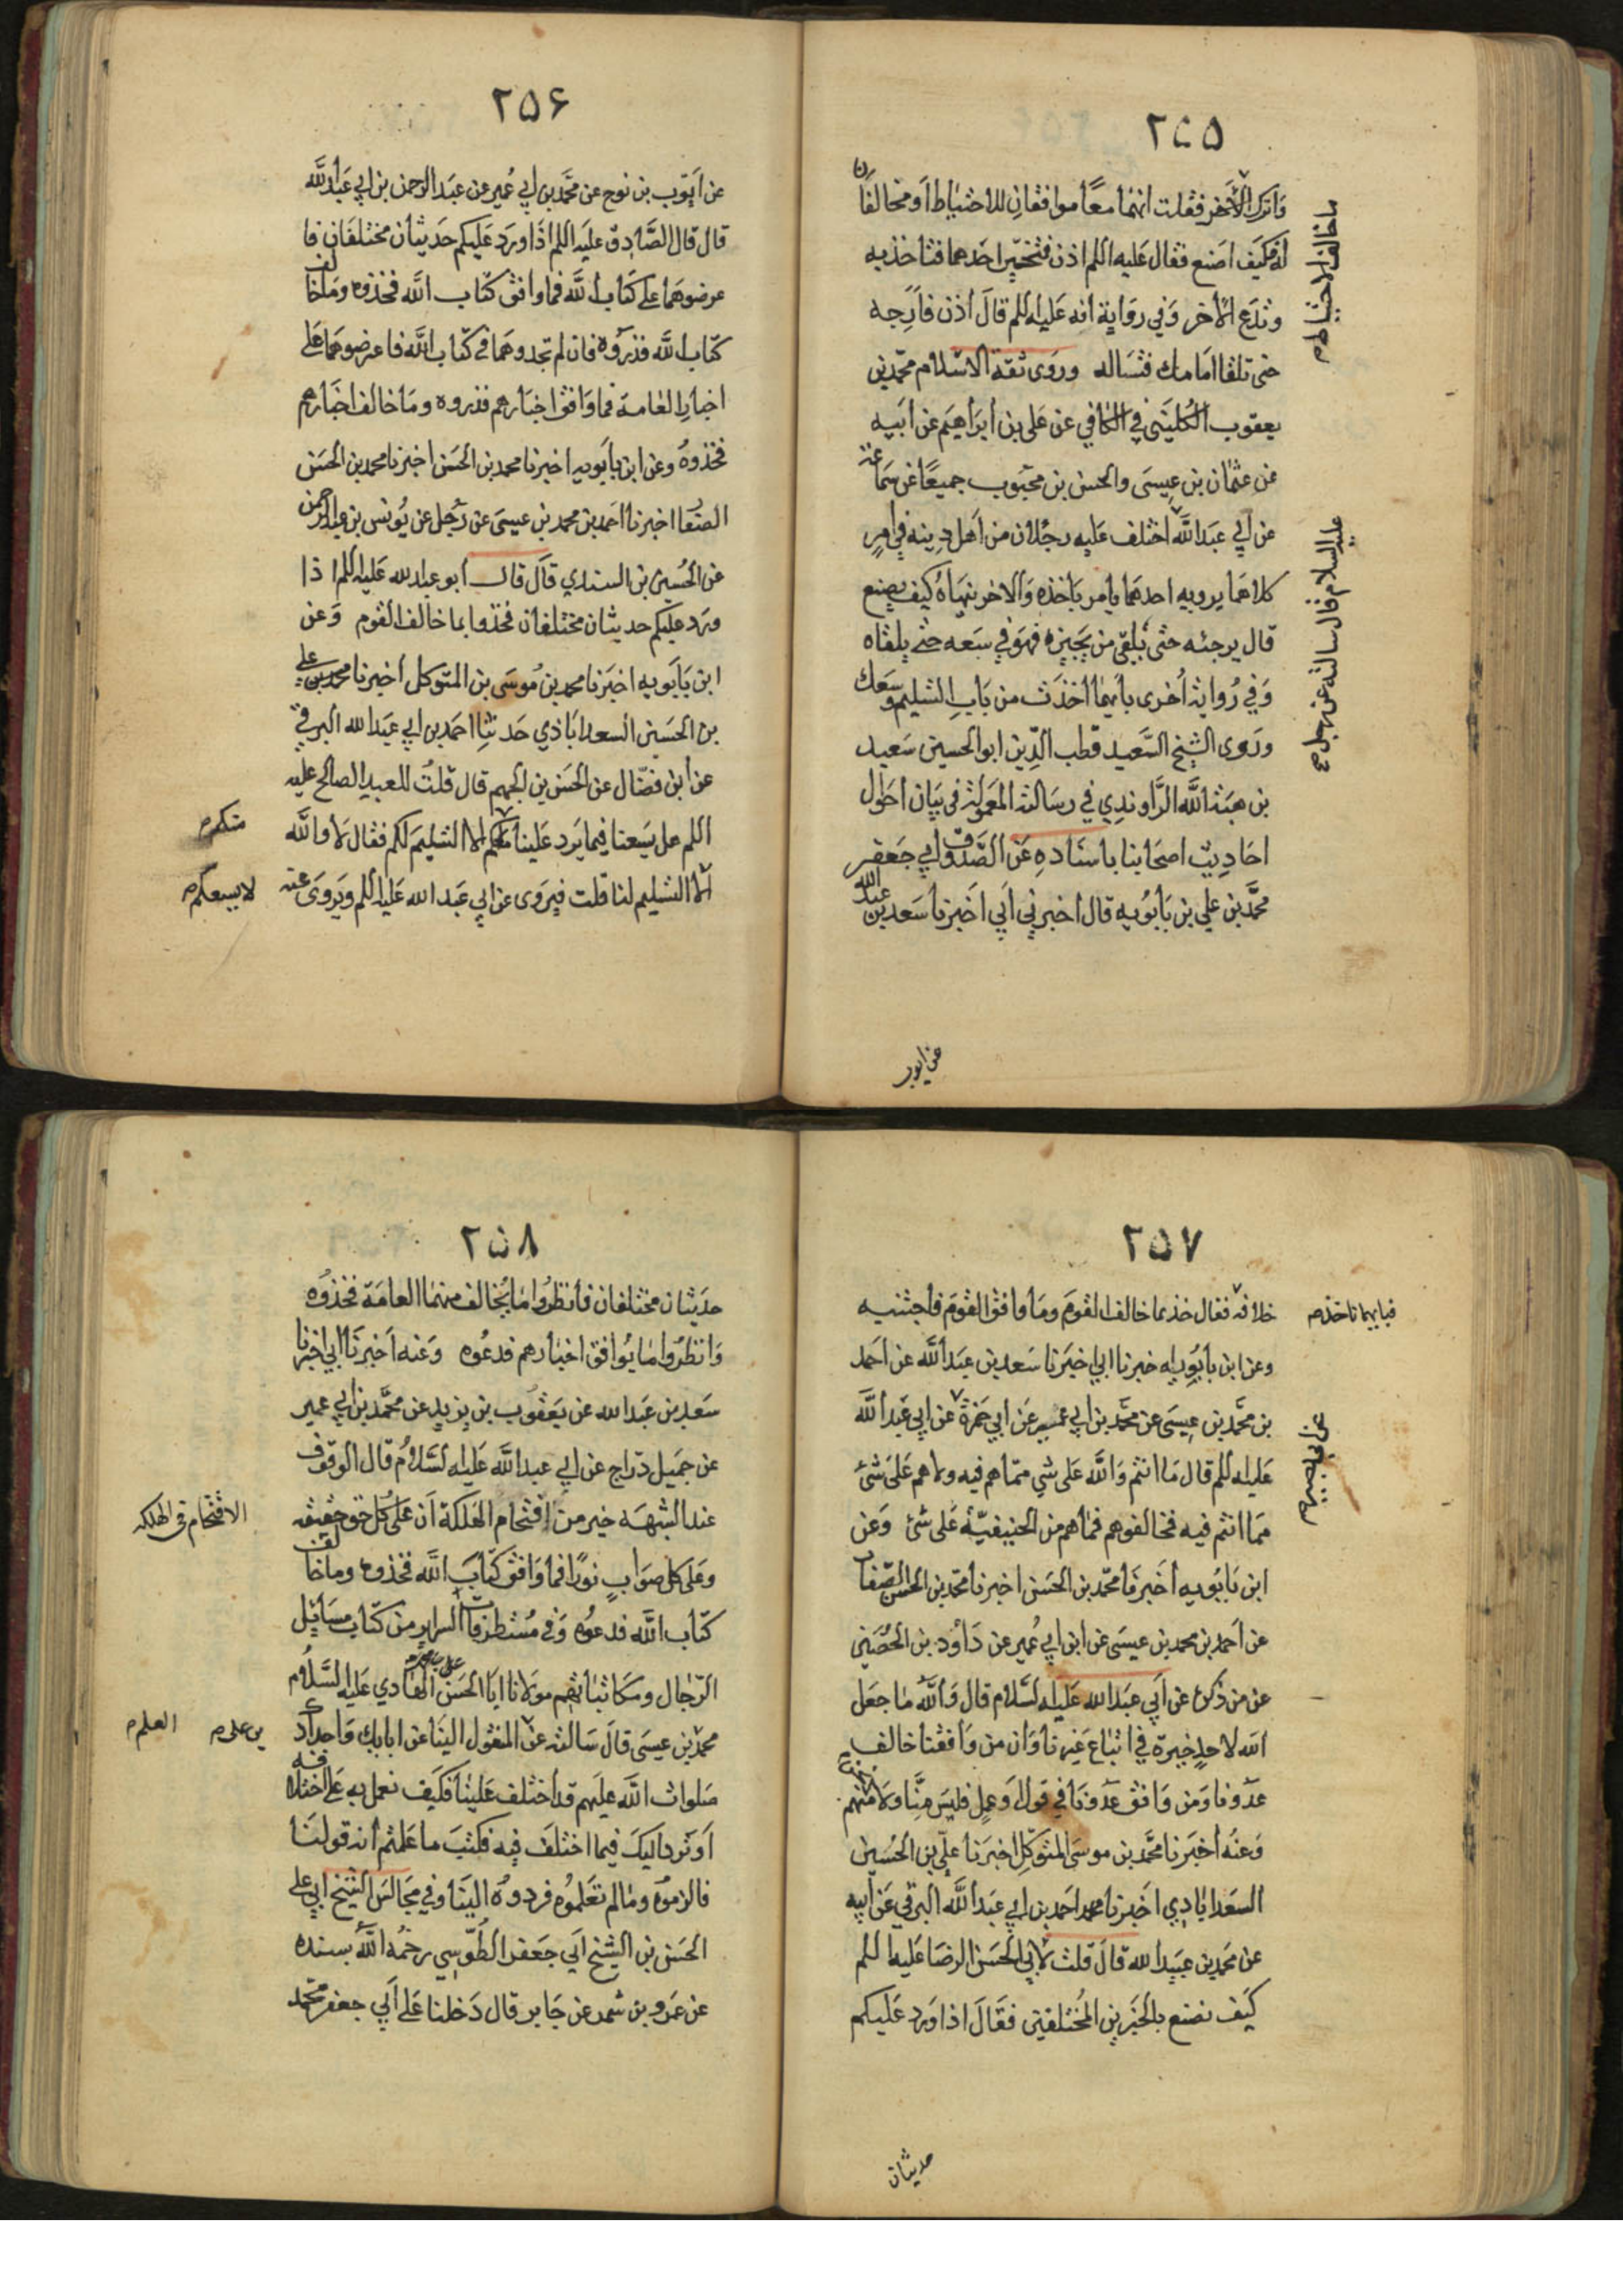 ٢٥٥
واترك الآخر فقلت انهما معًا موافقان للاحتياط أو مخالفان
له فكيف اصنع فقال عليه اللم اذن فتخيّر احدهما فتاخذ به
وتدع الآخر وفي رواية انه عليه اللم قال اذن فارجه
حتى تلقا امامك فتساله وروى ثقة الاسلام محمّد بن
يعقوب الكليني في الكافي عن علي بن أبراهيم عن أبيه
عن عثمان بن عيسى والحسن بن محبوب جميعًا عن سماعة
عن أبي عبد الله اختلف عليه رجلان من أهل دينه في امرٍ
كلاهما يرويه احدهما يامر باخذه والاخر ينهاه كيف يصنع
قال يرجئه حتى يلقى من يخبره فهو في سعه حتى يلقاه
وفي رواية اُخرى بأيهما اخذت من باب التسليم وسعك
وروى الشيخ السّعيد قطب الدّين ابو الحسين سعيد
بن هبة الله الرّاوندي في رسالته المعمولة في بيان احوال
احاديث اصحابنا باسناده عن الصّدوق ابي جعفر
محمّد بن علي بن بابويه قال اخبرني أبي اخبرنا سعد بن عبد الله
ما خالف الاحتياط م
عليه السلام قال سالته عن رجل صح
عن ايوب
٢٥۶
عن أيّوب بن نوح عن محمّد بن ابي عُمير عن عبد الرحمن بن ابي عبد الله
قال قال الصّادق عليه اللم اذا ورد عليكم حديثان مختلفان فا
عرضوهما على كتاب الله فما وافق كتاب الله فخذوه وما خالف
كتاب الله فذروه فان لم تجدوهما في كتاب الله فاعرضوهما على
اخبار العامة فما وافق اخبارهم فذروه وما خالف اخبارهم
فخذوه وعن ابن بابويه اخبرنا محمد بن الحسن اخبرنا محمد بن الحسن
الصفّا اخبرنا احمد بن محمد بن عيسى عن رجل عن يُونس بن عبد الرحمن
عن الحُسين بن السندي قال قال ابو عبد الله عليه اللم اذا
ورد عليكم حديثان مختلفان فخذوا بما خالف القوم وعن
ابن بابويه اخبرنا محمد بن مُوسى بن المتوكل اخبرنا محمد بن علي
بن الحسين السعداباذي حدثنا احمد بن ابي عبد الله البرقي
عن ابن فضّال عن الحسن بن الجهم قال قلتُ للعبد الصالح عليه
اللم هل يسعنا فيما يرد علينا منكم الا التسليم لكم فقال لا والله
الّا التسليم لنا قلت فيروى عن ابي عبد الله عليه اللم ويروى عنه
منكم م
لا يسعكم م
٢٥٧
خلافه فقال خذ بما خالف القوم وما وافق القوم فاجتنبه
وعن ابن بابويه اخبرنا ابي اخبرنا سعد بن عبد الله عن احمد
بن محمّد بن عيسى عن محمّد بن ابي عمير عن ابي حمزة عن ابي عبد الله
عليه اللم قال ما انتم والله على شي ممّا هم فيه ولا هم على شئ
مما انتم فيه فخالفوهم فما هم من الحنيفيّة على شئ وعن
ابن بابويه أخبرنا محمّد بن الحسن اخبرنا محمد بن الحسن الصّفار
عن احمد بن محمد بن عيسى عن ابن ابي عُمير عن داود بن الحُصين
عن من ذكره عن أبي عبد الله عليه السّلام قال والله ما جعل
الله لاحدٍ خيرة في اتباع غيرنا وان من وافقنا خالف
عدّونا ومن وافق عدّونا في قول او عملٍ فليس منّا ولا نحن منهم
وعنه أخبرنا محمّد بن موسى المتوكّل اخبرنا عليّ بن الحُسين
السعد اباذي اخبرنا محمد احمد بن ابي عبد الله البرقي عن أبيه
عن محمد بن عبيد الله قال قلت لأبي الحسن الرضا عليه اللم
كيف نصنع بالخبرين المُختلفين فقال اذا ورد عليكم
فبايهما ناخذ م
حديثان
٢٥٨
حديثان مختلفان فأنظروا ما يُخالف منهما العامّة فخذوه
وانظروا ما يُوافق اخبارهم فدعُوه وعنه أخبرنا ابي اخبرنا
سعد بن عبد الله عن يعقوب بن يزيد عن محمّد بن ابي عمير
عن جميل درّاج عن ابي عبد الله عليه السّلام قال الوقوف
عند الشبهه خير من اقتحام الهلكة أن على كُل حق حقيقه
وعلى كل صوابٍ نورًا فما وافق كتاب الله فخذوه وما خالف
كتاب الله فدعوه وفي مُستطرفات السراير من كتاب مسائل
الرّجال ومكاتباتهم مولانا ابا الحسن علي بن محمد الهادي عليه السّلام
محمّد بن عيسى قال سالته عن المنقول الينا عن ابايك واجدادك
صلوات الله عليهم قد اختلف علينا فكيف نعمل به على اختلافه
أو نرد اليك فيما اختلف فيه فكتب ما علمتم أنه قولنا
فالزموه وما لم تعلموه فردوه الينا وفي مجالس الشيخ ابي علي
الحسن بن الشيخ ابي جعفر الطوّسي رحمُه الله بسنده
عن عمرو بن شمر عن جابر قال دخلنا على أبي جعفر محمّد
الاقتحام في الهلكه
بن علي م
العلم م